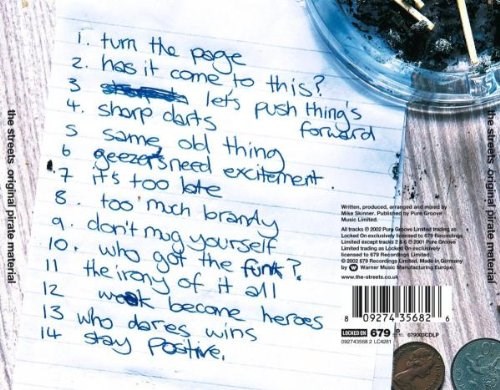 the streets original pirate material
1. turn the page
2. has it come to this?
3 lets push things
forward
4. sharp darts
5 same old thing
6 geezers need excitement.
.7 it's too late
8. too much brandy
9. don't mug yourself
10. who got the funk?.
11 the irony of it all
12 weak become heroes
13 who dares wins
14 stay Positive,
Written, produced, arranged and mixed by
Mike Skinner. Published by Pure Groove
Music Limited.
All tracks ℗ 2002 Pure Groove Limited trading as
Locked On exclusively licensed to 679 Recordings
Limited except tracks 2 & 6 ℗ 2001 Pure Groove
Limited trading as Locked On exclusively
licensed to 679 Recordings Limited.
© 2002 679 Recordings Limited. Made in Germany
by Warner Music Manufacturing Europe.
www.the-streets.co.uk
8 09274 35682 6
LOCKED ON 679
the streets original pirate material